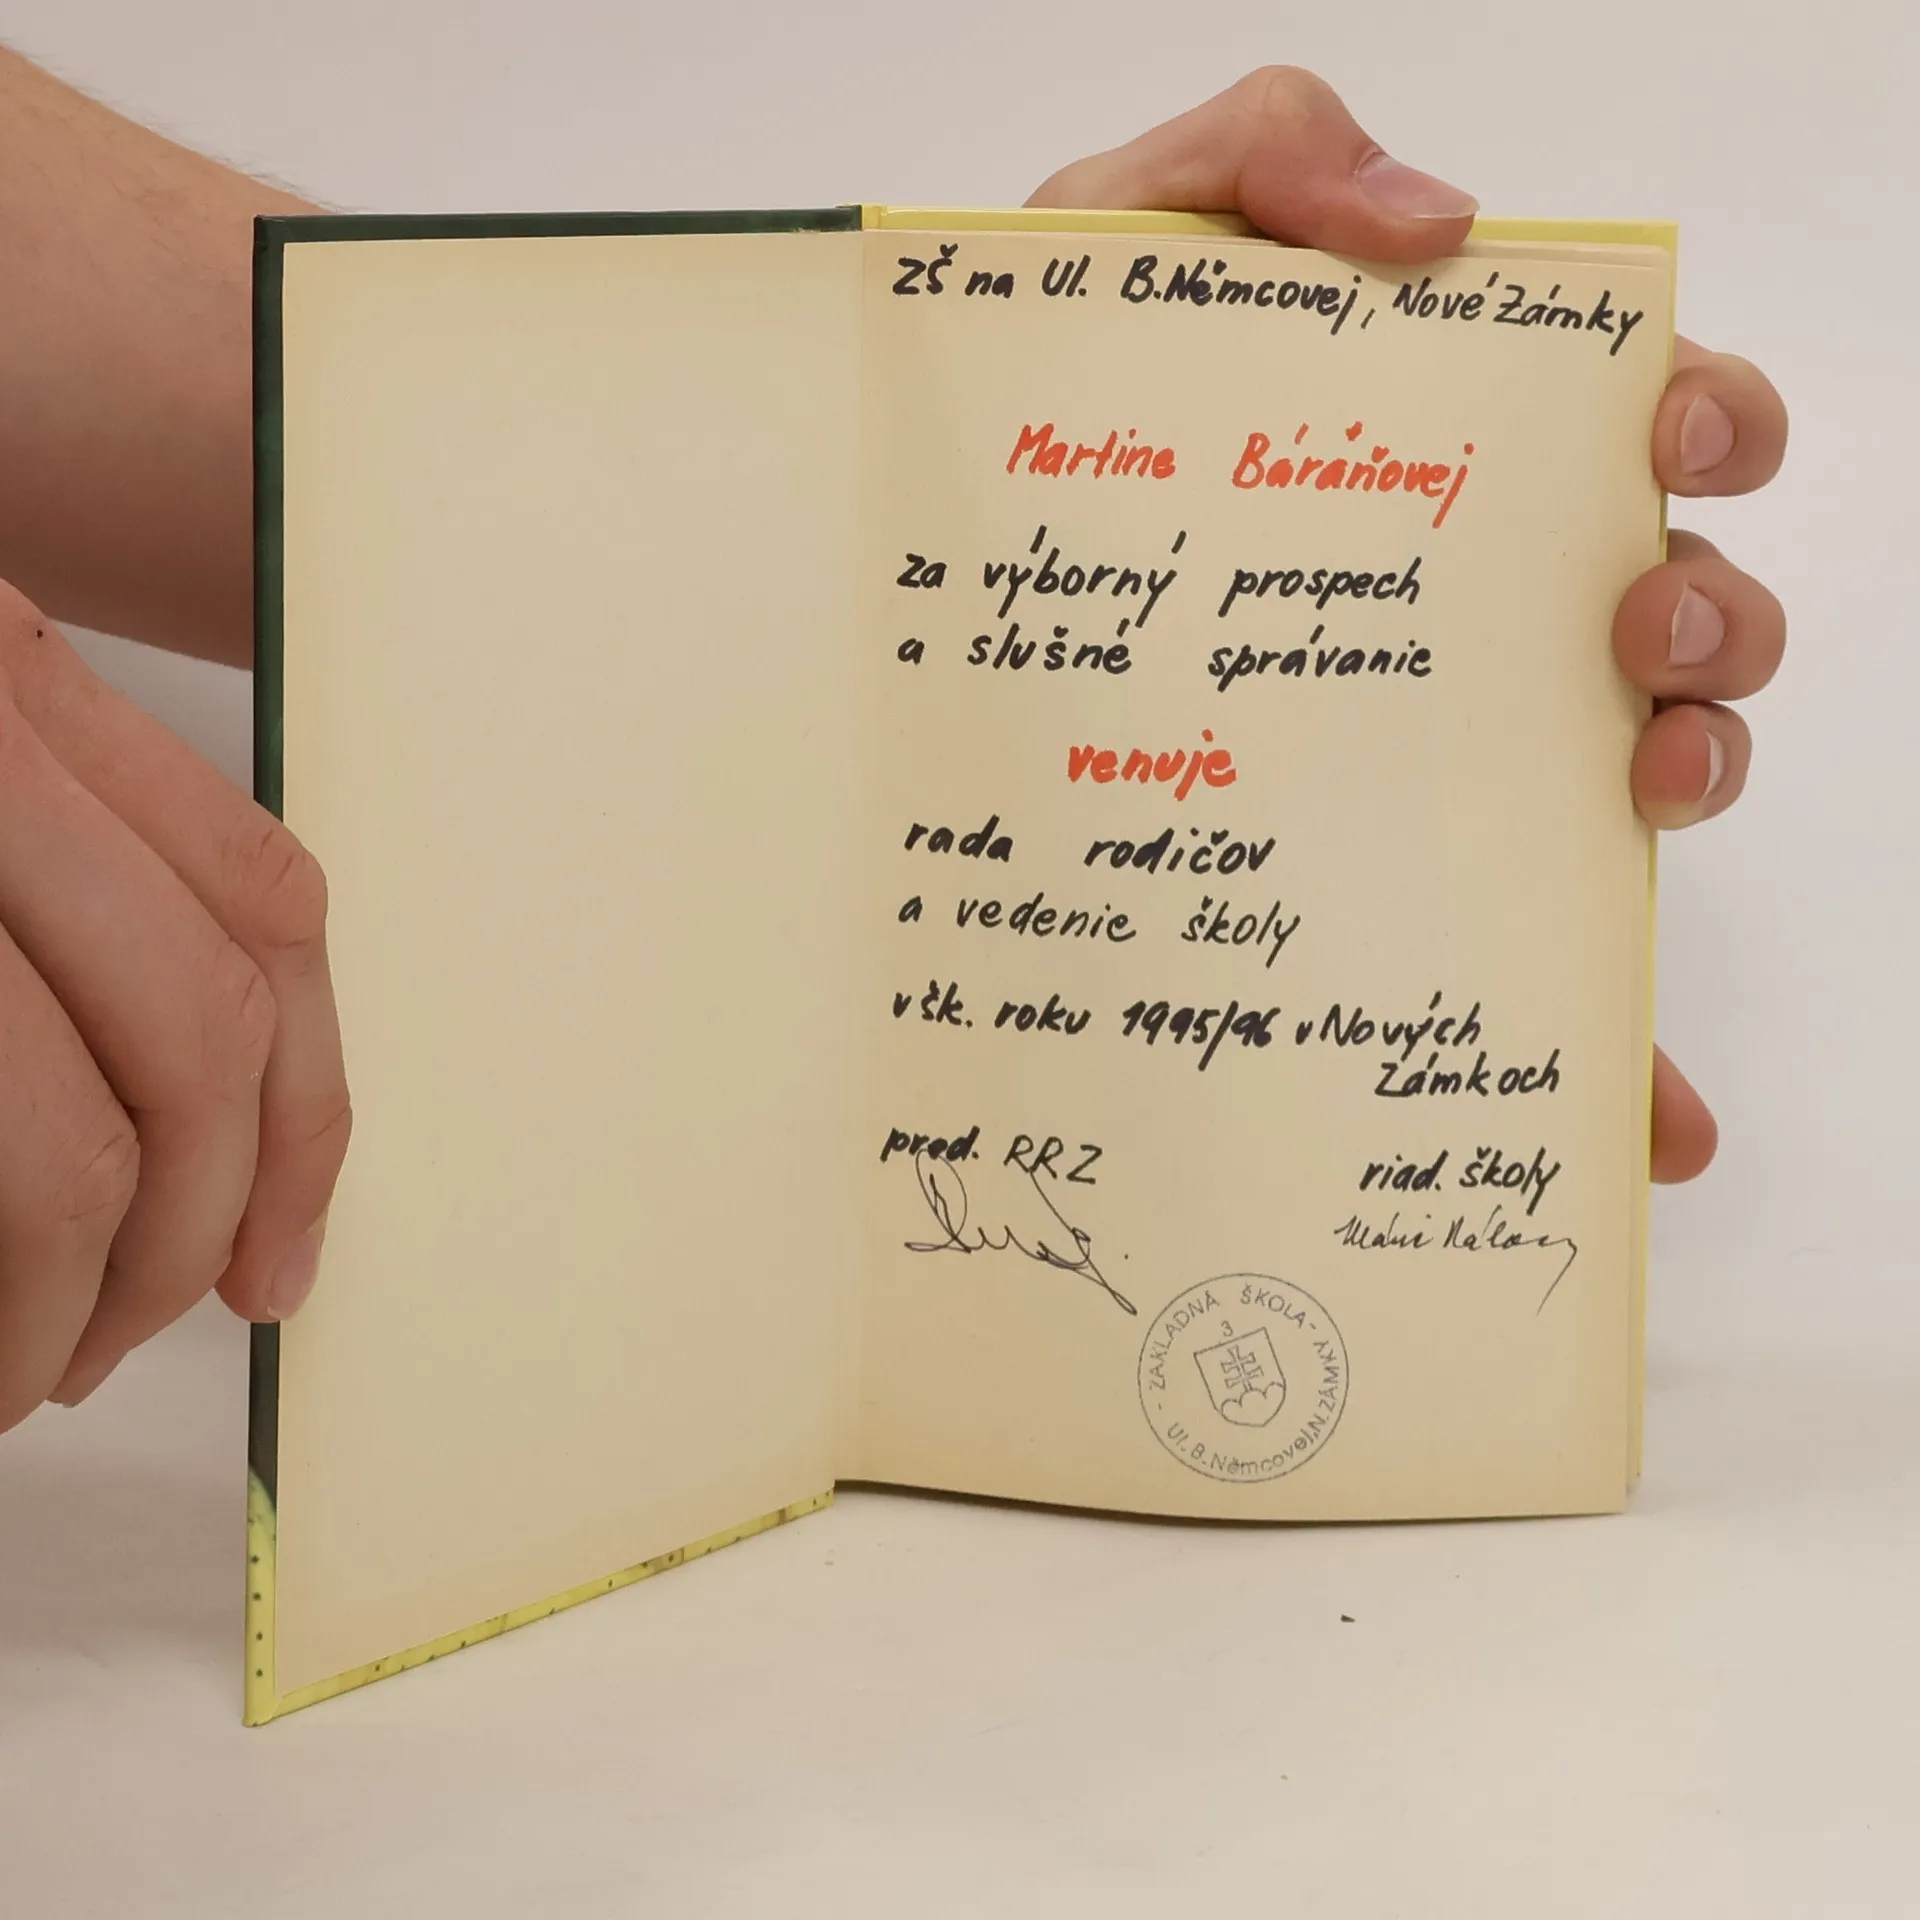 ZŠ na Ul. B. Němcovej, Nové Zámky
Martine Báráňovej
za výborný prospech
a slušné správanie
venuje
rada rodičov
a vedenie školy
v šk. roku 1995/96 v Nových
Zámkoch
pred. RRZ
riad. školy
- ZÁKLADNÁ ŠKOLA -
3
Ul. B. Němcovej, N. ZÁMKY